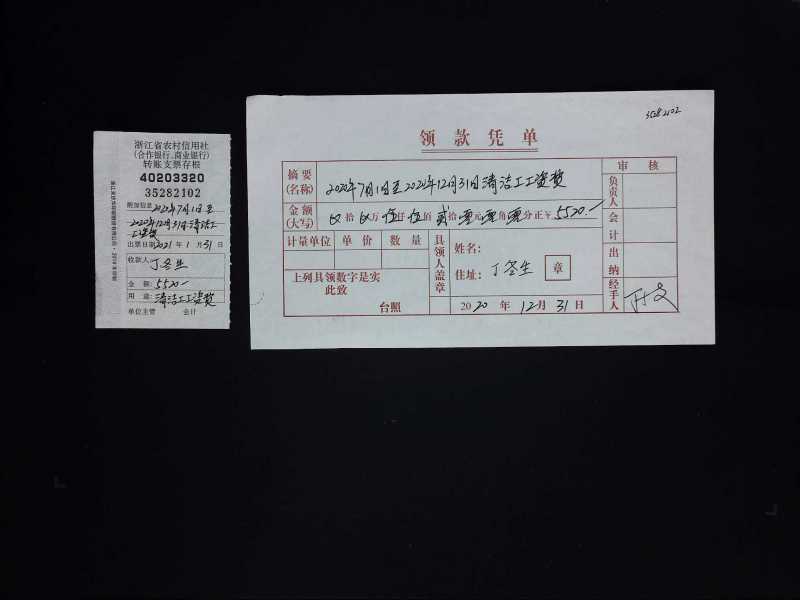 浙江省农村信用社
(合作银行、商业银行)
转账支票存根
40203320
35282102
附加信息 2020年7月1日至
2020年12月31日清洁工
工资费
出票日期 2021年1月31日
收款人: 丁冬生
金额: 5520—
用途: 清洁工工资费
单位主管 会计
35282102
领款凭单
摘要(名称) 2020年7月1日至2020年12月31日清洁工工资费
金额(大写) 拾 万 伍仟 伍佰 贰拾 元 角 分 正 ¥ 5520.—
计量单位 单价 数量
上列具领数字是实
此致
台照
具领人盖章
姓名:
住址: 丁冬生 章
2020年12月31日
审核
负责人
会计
出纳
经手人